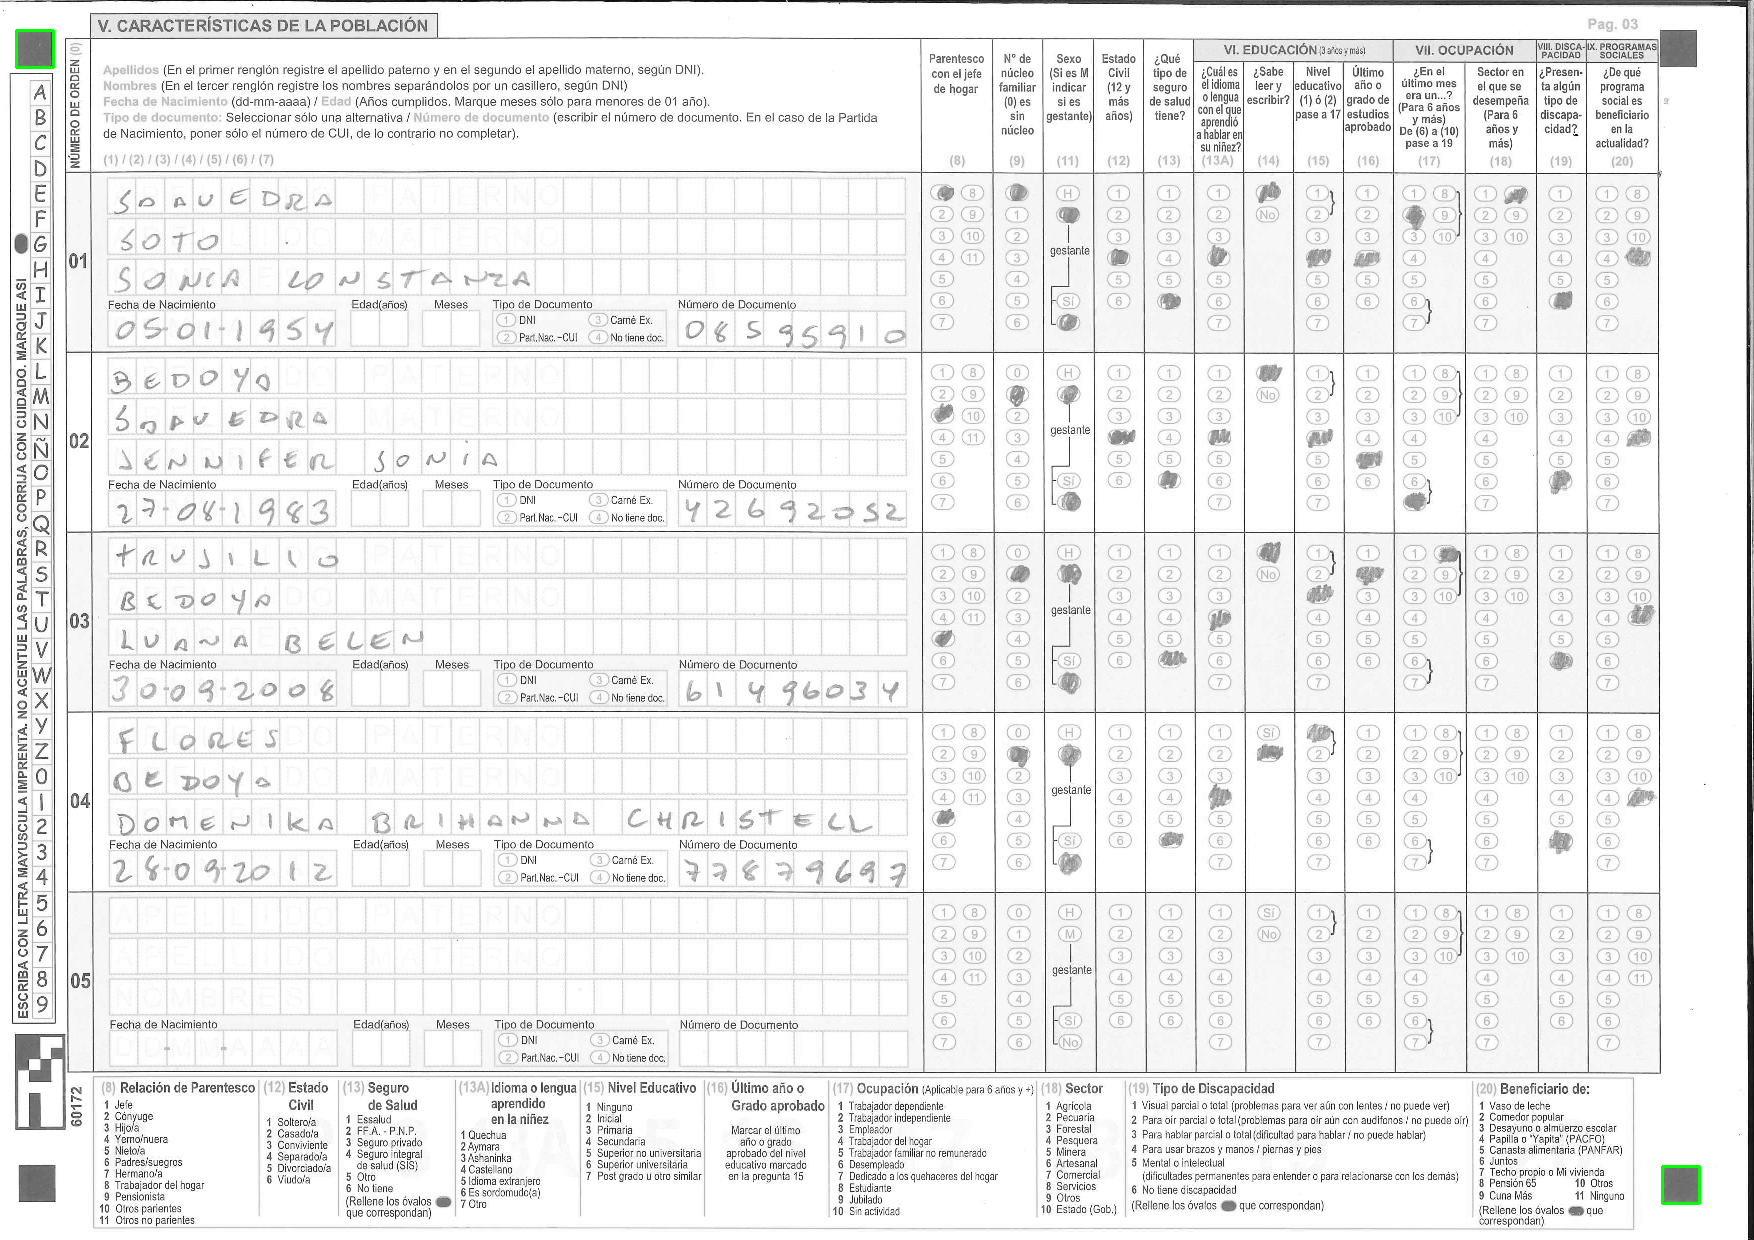 V. CARACTERÍSTICAS DE LA POBLACIÓN
Pag. 03
ESCRIBA CON LETRA MAYUSCULA IMPRENTA. NO ACENTUE LAS PALABRAS, CORRIJA CON CUIDADO. MARQUE ASI
A
B
C
D
E
F
G
H
I
J
K
L
M
N
Ñ
O
P
Q
R
S
T
U
V
W
X
Y
Z
0
1
2
3
4
5
6
7
8
9
60172
NÚMERO DE ORDEN (0)
Apellidos (En el primer renglón registre el apellido paterno y en el segundo el apellido materno, según DNI).
Nombres (En el tercer renglón registre los nombres separándolos por un casillero, según DNI)
Fecha de Nacimiento (dd-mm-aaaa) / Edad (Años cumplidos. Marque meses sólo para menores de 01 año).
Tipo de documento: Seleccionar sólo una alternativa / Número de documento (escribir el número de documento. En el caso de la Partida
de Nacimiento, poner sólo el número de CUI, de lo contrario no completar).
(1) / (2) / (3) / (4) / (5) / (6) / (7)
Parentesco con el jefe de hogar (8)
N° de núcleo familiar (0) es sin núcleo (9)
Sexo (Si es M indicar si es gestante) (11)
Estado Civil (12 y más años) (12)
¿Qué tipo de seguro de salud tiene? (13)
VI. EDUCACIÓN (3 años y más)
¿Cuál es el idioma o lengua con el que aprendió a hablar en su niñez? (13A)
¿Sabe leer y escribir? (14)
Nivel educativo (1) ó (2) pase a 17 (15)
Último año o grado de estudios aprobado (16)
VII. OCUPACIÓN
¿En el último mes era un...? (Para 6 años y más) De (6) a (10) pase a 19 (17)
Sector en el que se desempeña (Para 6 años y más) (18)
VIII. DISCAPACIDAD
¿Presenta algún tipo de discapacidad? (19)
IX. PROGRAMAS SOCIALES
¿De qué programa social es beneficiario en la actualidad? (20)
01
SAAVEDRA
SOTO
SONIA CONSTANZA
Fecha de Nacimiento Edad(años) Meses Tipo de Documento Número de Documento
05-01-1954 1 DNI 3 Carné Ex. 2 Part.Nac.-CUI 4 No tiene doc. 08595910
gestante
02
BEDOYA
SAAVEDRA
JENNIFER SONIA
Fecha de Nacimiento Edad(años) Meses Tipo de Documento Número de Documento
27-08-1983 1 DNI 3 Carné Ex. 2 Part.Nac.-CUI 4 No tiene doc. 42692052
gestante
03
TRUJILLO
BEDOYA
LUANA BELEN
Fecha de Nacimiento Edad(años) Meses Tipo de Documento Número de Documento
30-09-2008 1 DNI 3 Carné Ex. 2 Part.Nac.-CUI 4 No tiene doc. 61496034
gestante
04
FLORES
BEDOYA
DOMENIKA BRIHANNA CHRISTELL
Fecha de Nacimiento Edad(años) Meses Tipo de Documento Número de Documento
28-09-2012 1 DNI 3 Carné Ex. 2 Part.Nac.-CUI 4 No tiene doc. 77879697
gestante
05
APELLIDO PATERNO
NOMBRES
Fecha de Nacimiento Edad(años) Meses Tipo de Documento Número de Documento
1 DNI 3 Carné Ex. 2 Part.Nac.-CUI 4 No tiene doc.
gestante
(8) Relación de Parentesco
1 Jefe
2 Cónyuge
3 Hijo/a
4 Yerno/nuera
5 Nieto/a
6 Padres/suegros
7 Hermano/a
8 Trabajador del hogar
9 Pensionista
10 Otros parientes
11 Otros no parientes
(12) Estado Civil
1 Soltero/a
2 Casado/a
3 Conviviente
4 Separado/a
5 Divorciado/a
6 Viudo/a
(13) Seguro de Salud
1 Essalud
2 FF.A. - P.N.P.
3 Seguro privado
4 Seguro integral de salud (SIS)
5 Otro
6 No tiene
(Rellene los óvalos que correspondan)
(13A) Idioma o lengua aprendido en la niñez
1 Quechua
2 Aymara
3 Ashaninka
4 Castellano
5 Idioma extranjero
6 Es sordomudo(a)
7 Otro
(15) Nivel Educativo
1 Ninguno
2 Inicial
3 Primaria
4 Secundaria
5 Superior no universitaria
6 Superior universitaria
7 Post grado u otro similar
(16) Último año o Grado aprobado
Marcar el último
año o grado
aprobado del nivel
educativo marcado
en la pregunta 15
(17) Ocupación (Aplicable para 6 años y +)
1 Trabajador dependiente
2 Trabajador independiente
3 Empleador
4 Trabajador del hogar
5 Trabajador familiar no remunerado
6 Desempleado
7 Dedicado a los quehaceres del hogar
8 Estudiante
9 Jubilado
10 Sin actividad
(18) Sector
1 Agrícola
2 Pecuaria
3 Forestal
4 Pesquera
5 Minera
6 Artesanal
7 Comercial
8 Servicios
9 Otros
10 Estado (Gob.)
(19) Tipo de Discapacidad
1 Visual parcial o total (problemas para ver aún con lentes / no puede ver)
2 Para oir parcial o total (problemas para oir aún con audífonos / no puede oir)
3 Para hablar parcial o total (dificultad para hablar / no puede hablar)
4 Para usar brazos y manos / piernas y pies
5 Mental o intelectual
(dificultades permanentes para entender o para relacionarse con los demás)
6 No tiene discapacidad
(Rellene los óvalos que correspondan)
(20) Beneficiario de:
1 Vaso de leche
2 Comedor popular
3 Desayuno o almuerzo escolar
4 Papilla o "Yapita" (PACFO)
5 Canasta alimentaria (PANFAR)
6 Juntos
7 Techo propio o Mi vivienda
8 Pensión 65 10 Otros
9 Cuna Más 11 Ninguno
(Rellene los óvalos que correspondan)